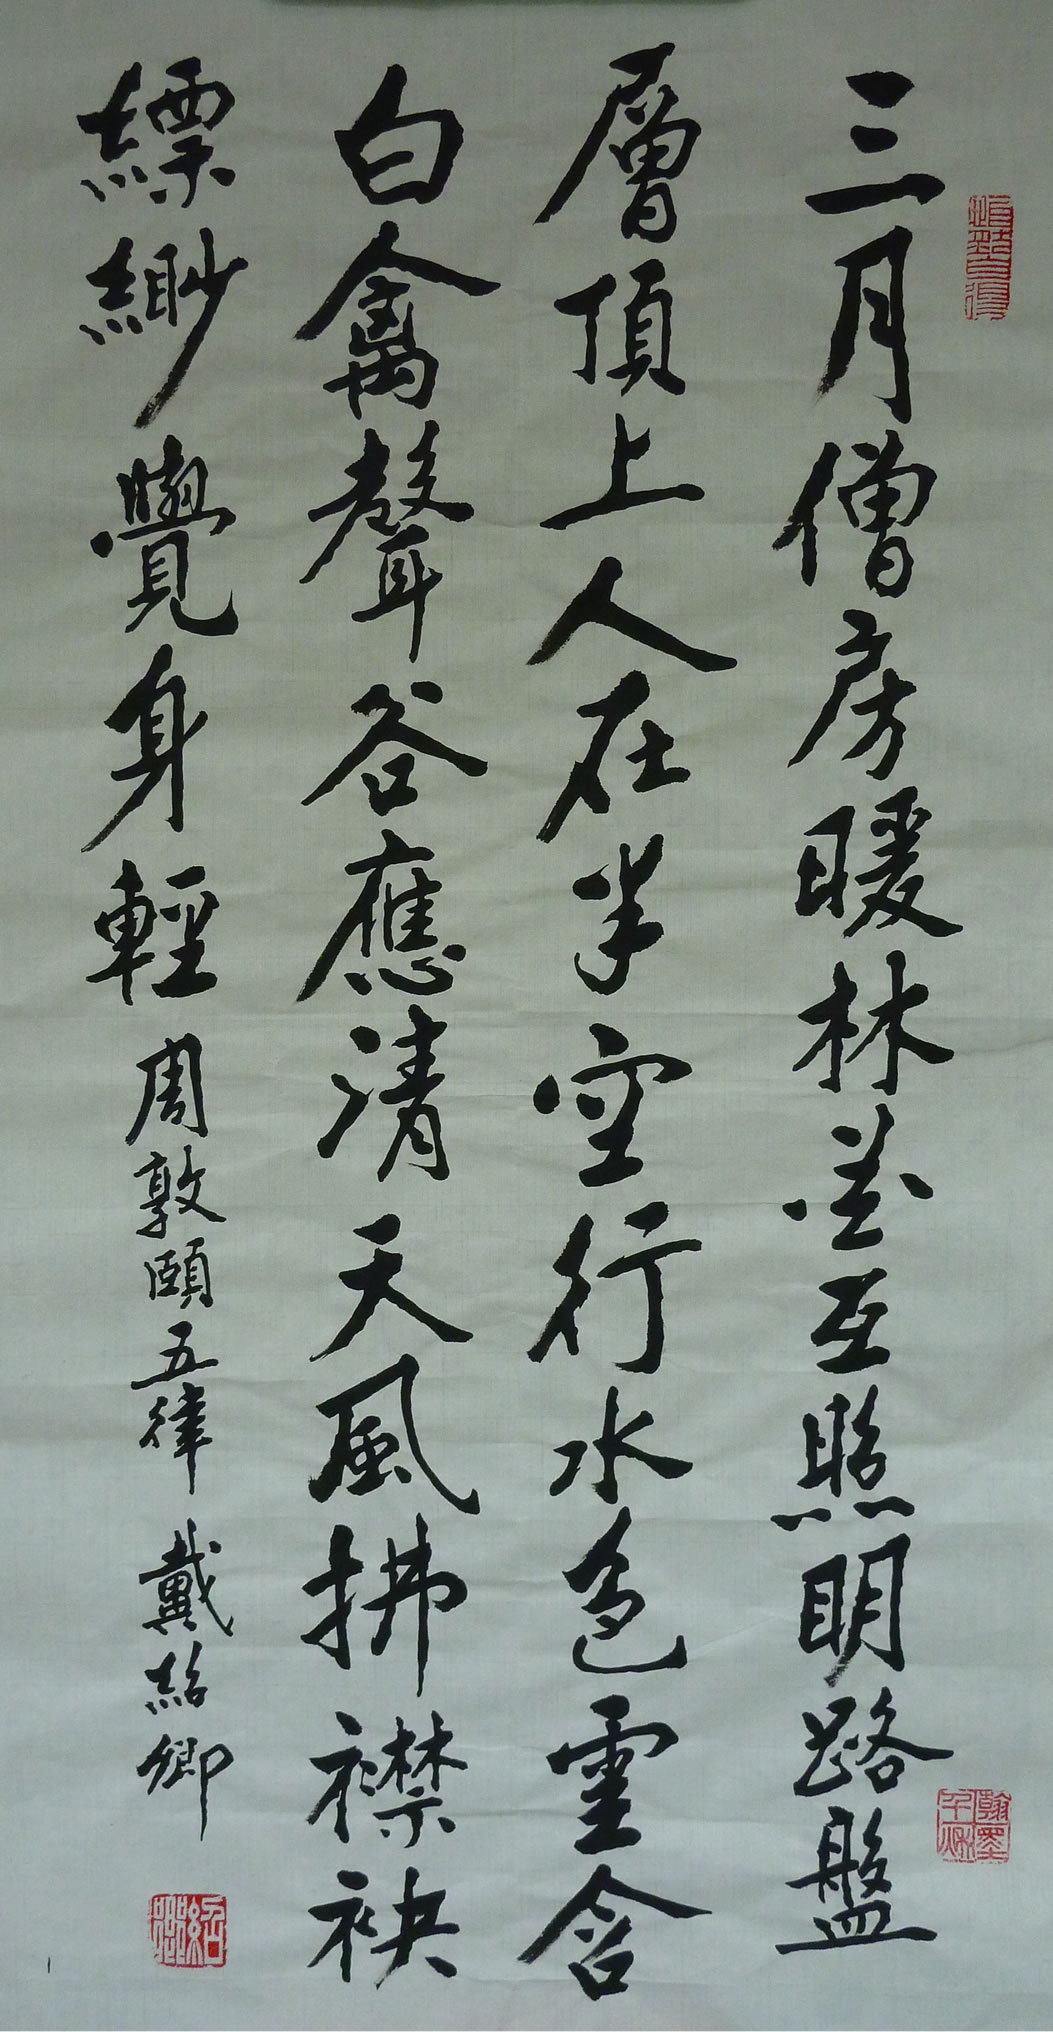 三月僧房暖林花互照明路盤
層頂上人在半空行水色雲含
白禽聲谷應清天風拂襟袂
縹緲覺身輕 周敦頤五律 戴紹卿
翰墨千秋
紹卿